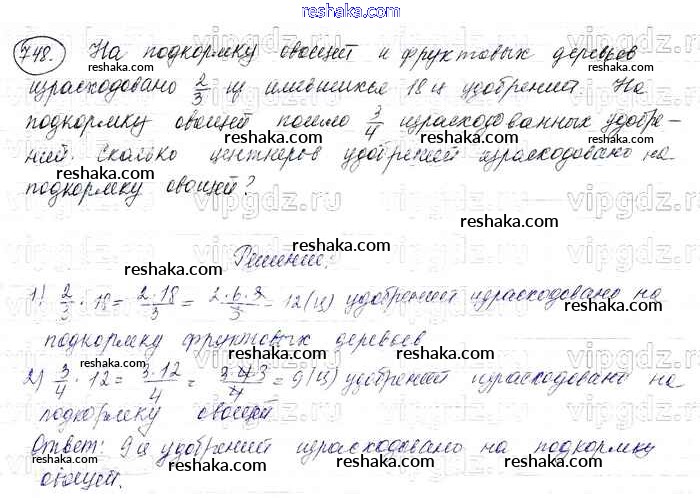 reshaka.com
748. На подкормку овощей и фруктовых деревьев
израсходовано 2/3 из имевшихся 18 ц удобрений. На
подкормку овощей пошло 3/4 израсходованных удобре-
ний. Сколько центнеров удобрений израсходовано на
подкормку овощей?
Решение.
1) 2/3 · 18 = 2·18/3 = 2·6·3/3 = 12 (ц) удобрений израсходовано на
подкормку фруктовых деревьев
2) 3/4 · 12 = 3·12/4 = 3·4·3/4 = 9 (ц) удобрений израсходовано на
подкормку овощей
Ответ: 9 ц удобрений израсходовано на подкормку
овощей.